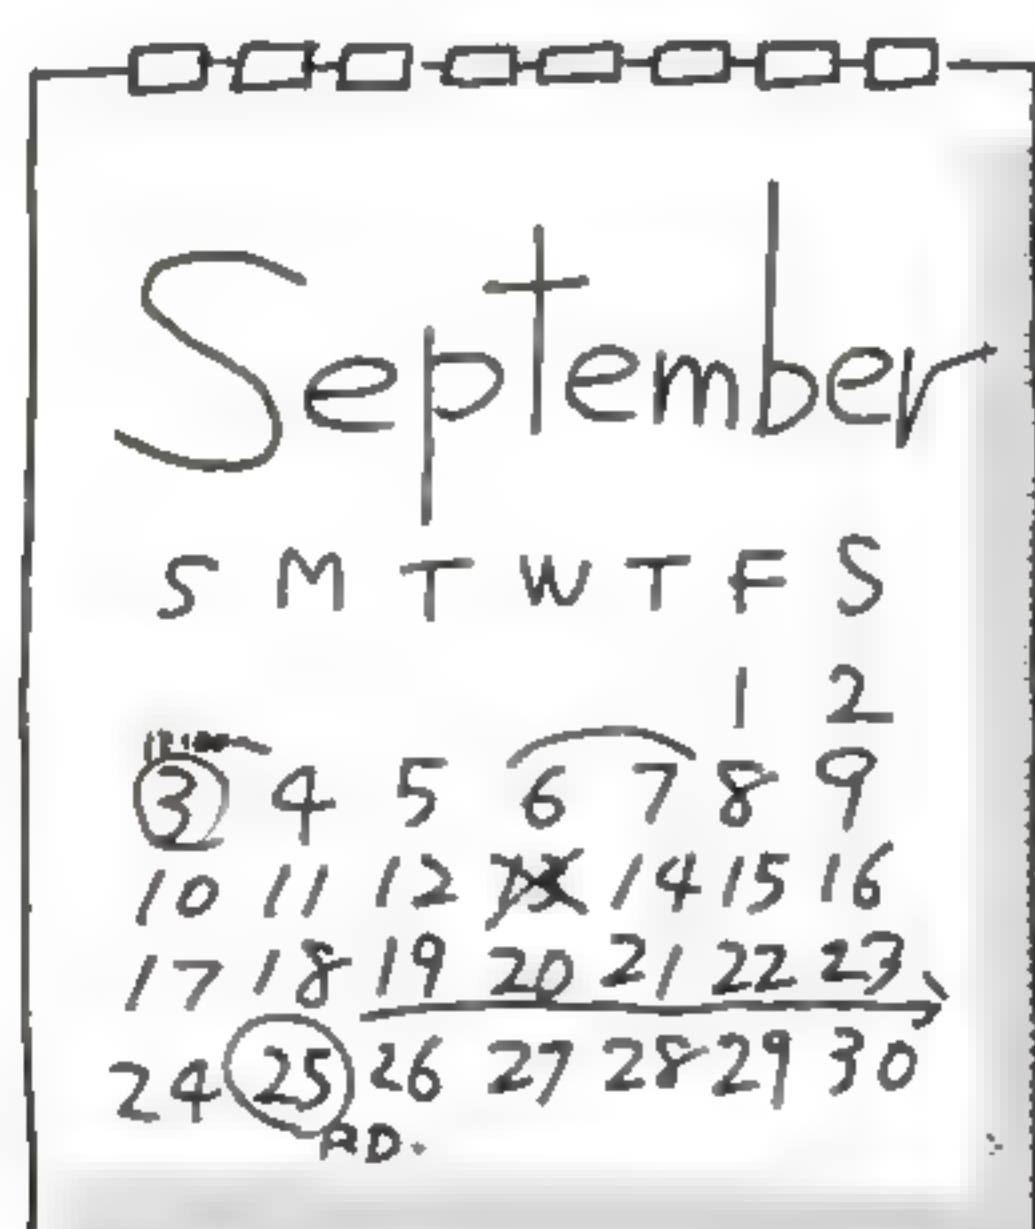 September
S M T W T F S
1 2
3 4 5 6 7 8 9
10 11 12 13 14 15 16
17 18 19 20 21 22 23
24 25 26 27 28 29 30